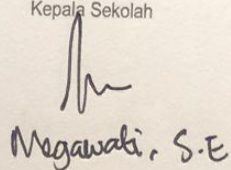 Kepala Sekolah
Megawati, S.E